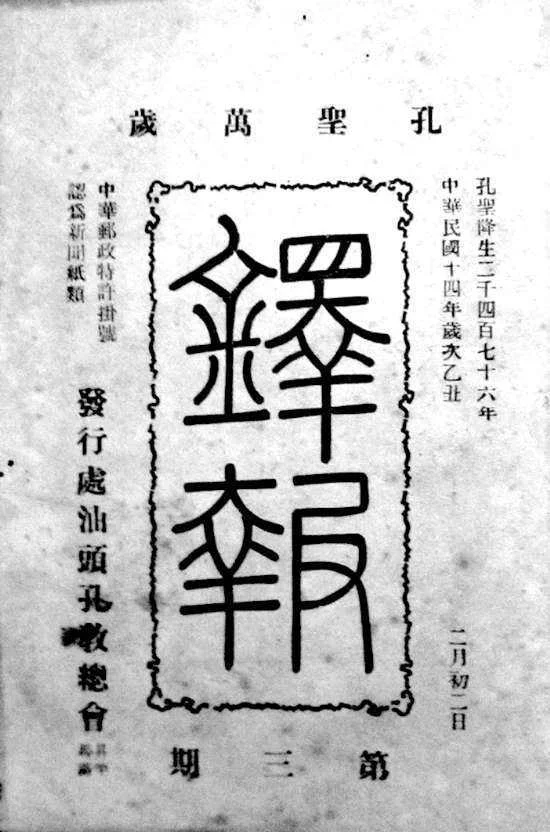 孔聖萬歲
孔聖降生二千四百七十六年
中華民國十四年歲次乙丑
二月初二日
鐸報
中華郵政特許掛號
認爲新聞紙類
發行處汕頭孔教總會
第三期